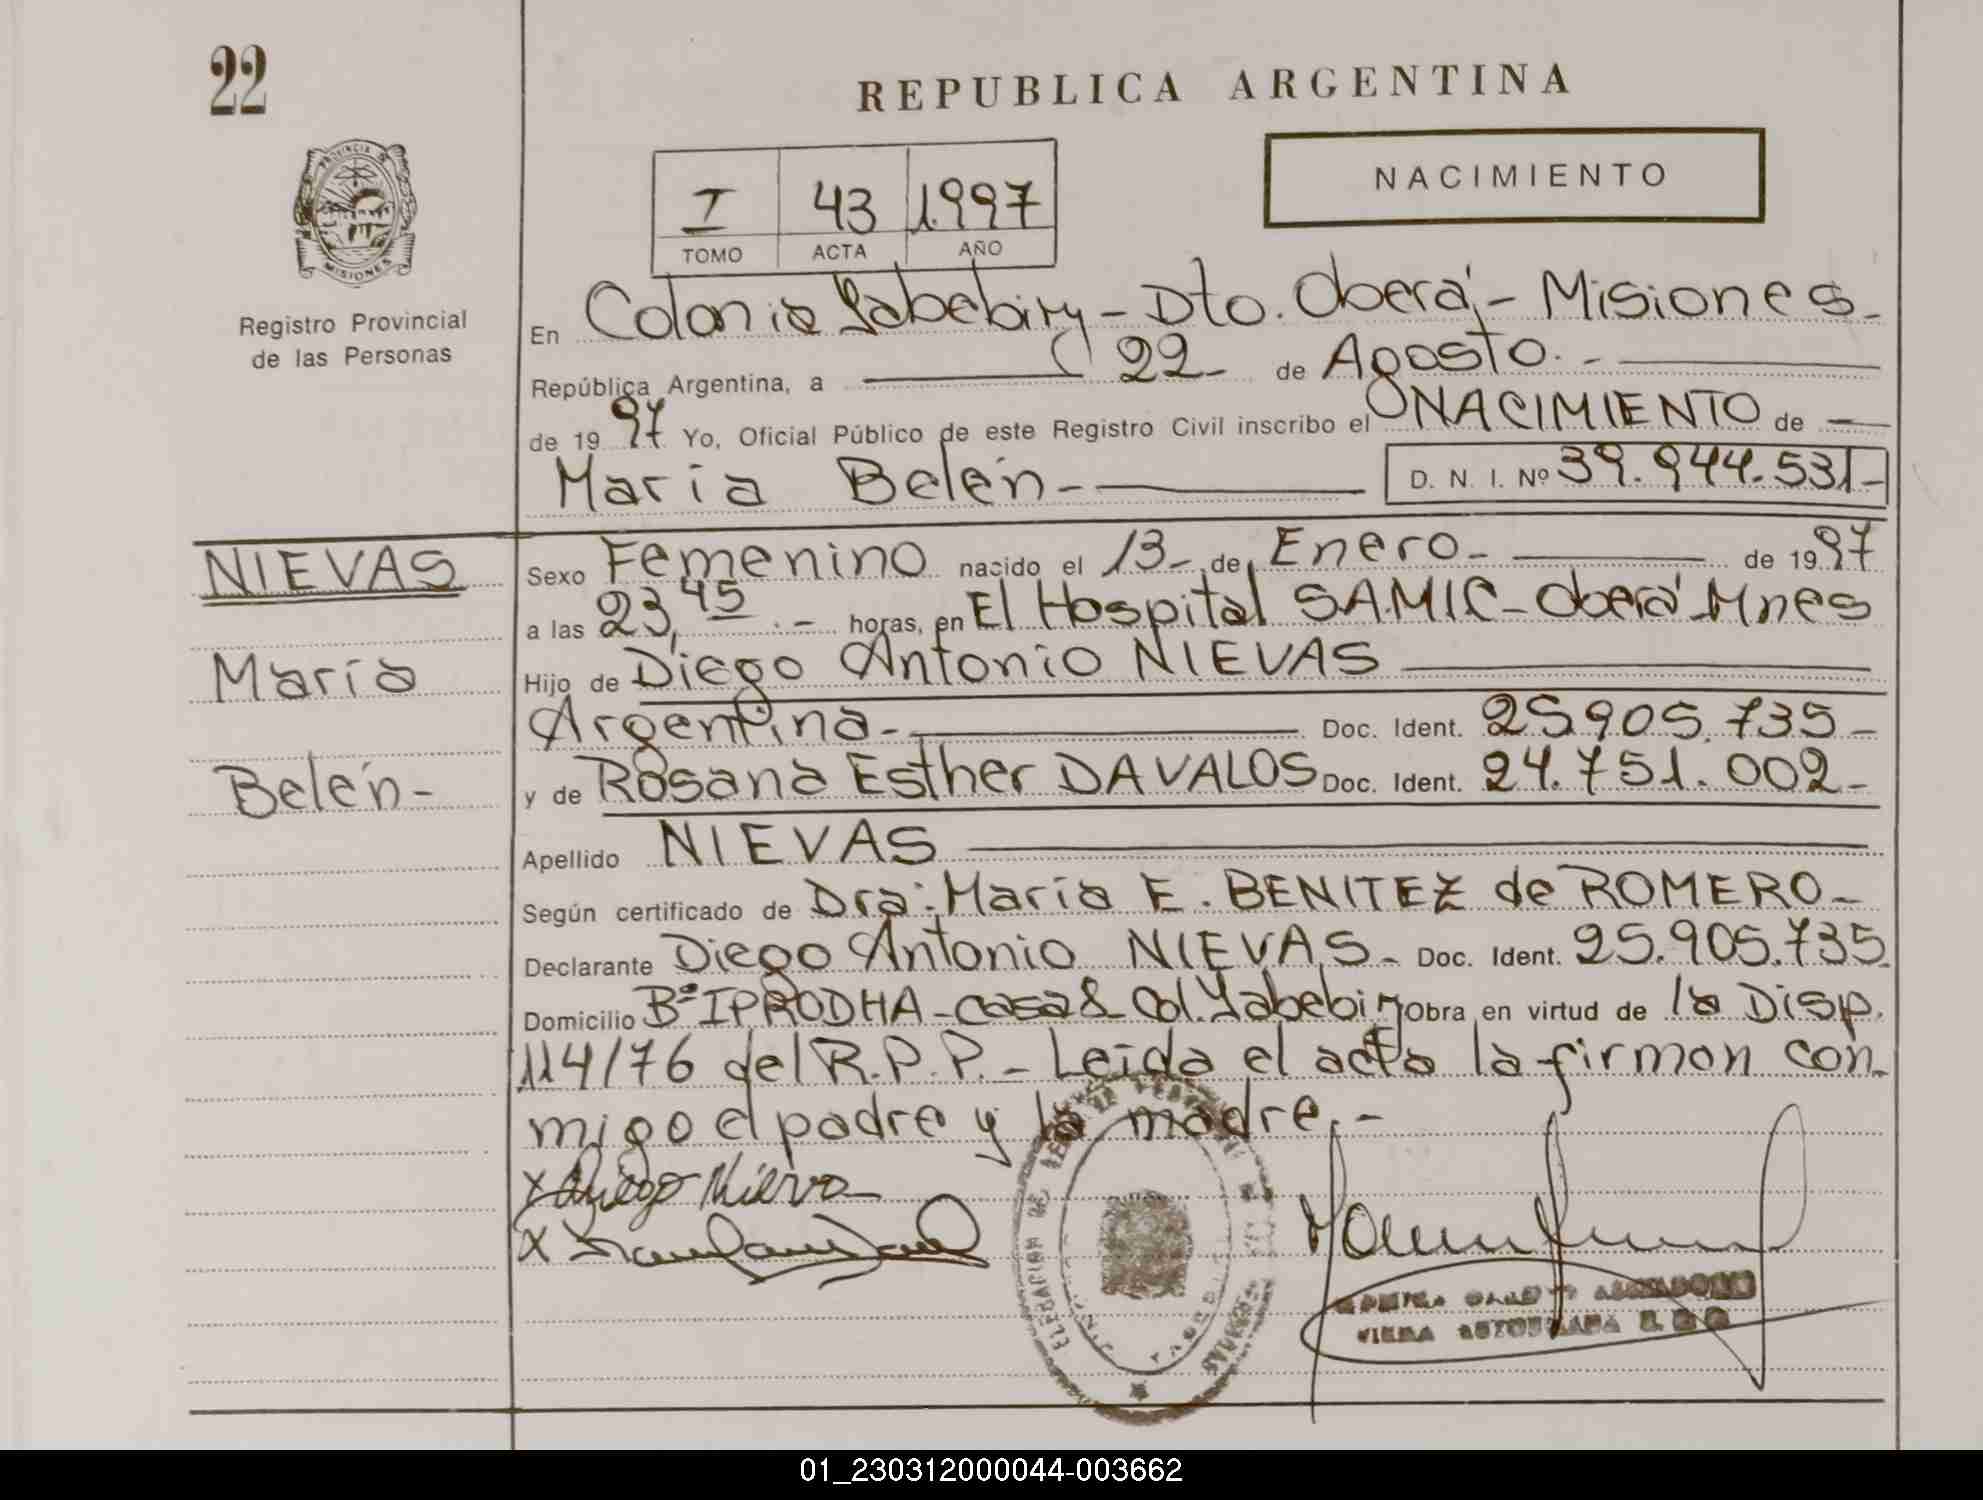 22
REPUBLICA ARGENTINA
NACIMIENTO
PROVINCIA DE
MISIONES
Registro Provincial
de las Personas
I 43 1.997
TOMO ACTA AÑO
En Colonia Yabebiry - Dto. Oberá - Misiones -
República Argentina, a 22 - de Agosto. -
de 19 97 Yo, Oficial Público de este Registro Civil inscribo el NACIMIENTO de —
María Belén - D. N. I. Nº 39.944.531 -
NIEVAS
María
Belén -
Sexo Femenino nacido el 13 - de Enero - de 19 97
a las 23,45 . - horas, en El Hospital SAMIC - Oberá Mnes
Hijo de Diego Antonio NIEVAS
Argentina - Doc. Ident. 25.905.735 -
y de Rosana Esther DAVALOS Doc. Ident. 24.751.002 -
Apellido NIEVAS
Según certificado de Dra: María E. BENITEZ de ROMERO -
Declarante Diego Antonio NIEVAS - Doc. Ident. 25.905.735
Domicilio Bº IPRODHA - casa 8 Col. Yabebiry Obra en virtud de la Disp.
114/76 del R.P.P. - Leída el acta la firman con
migo el padre y la madre. -
x Diego Nieva
x
01_230312000044-003662